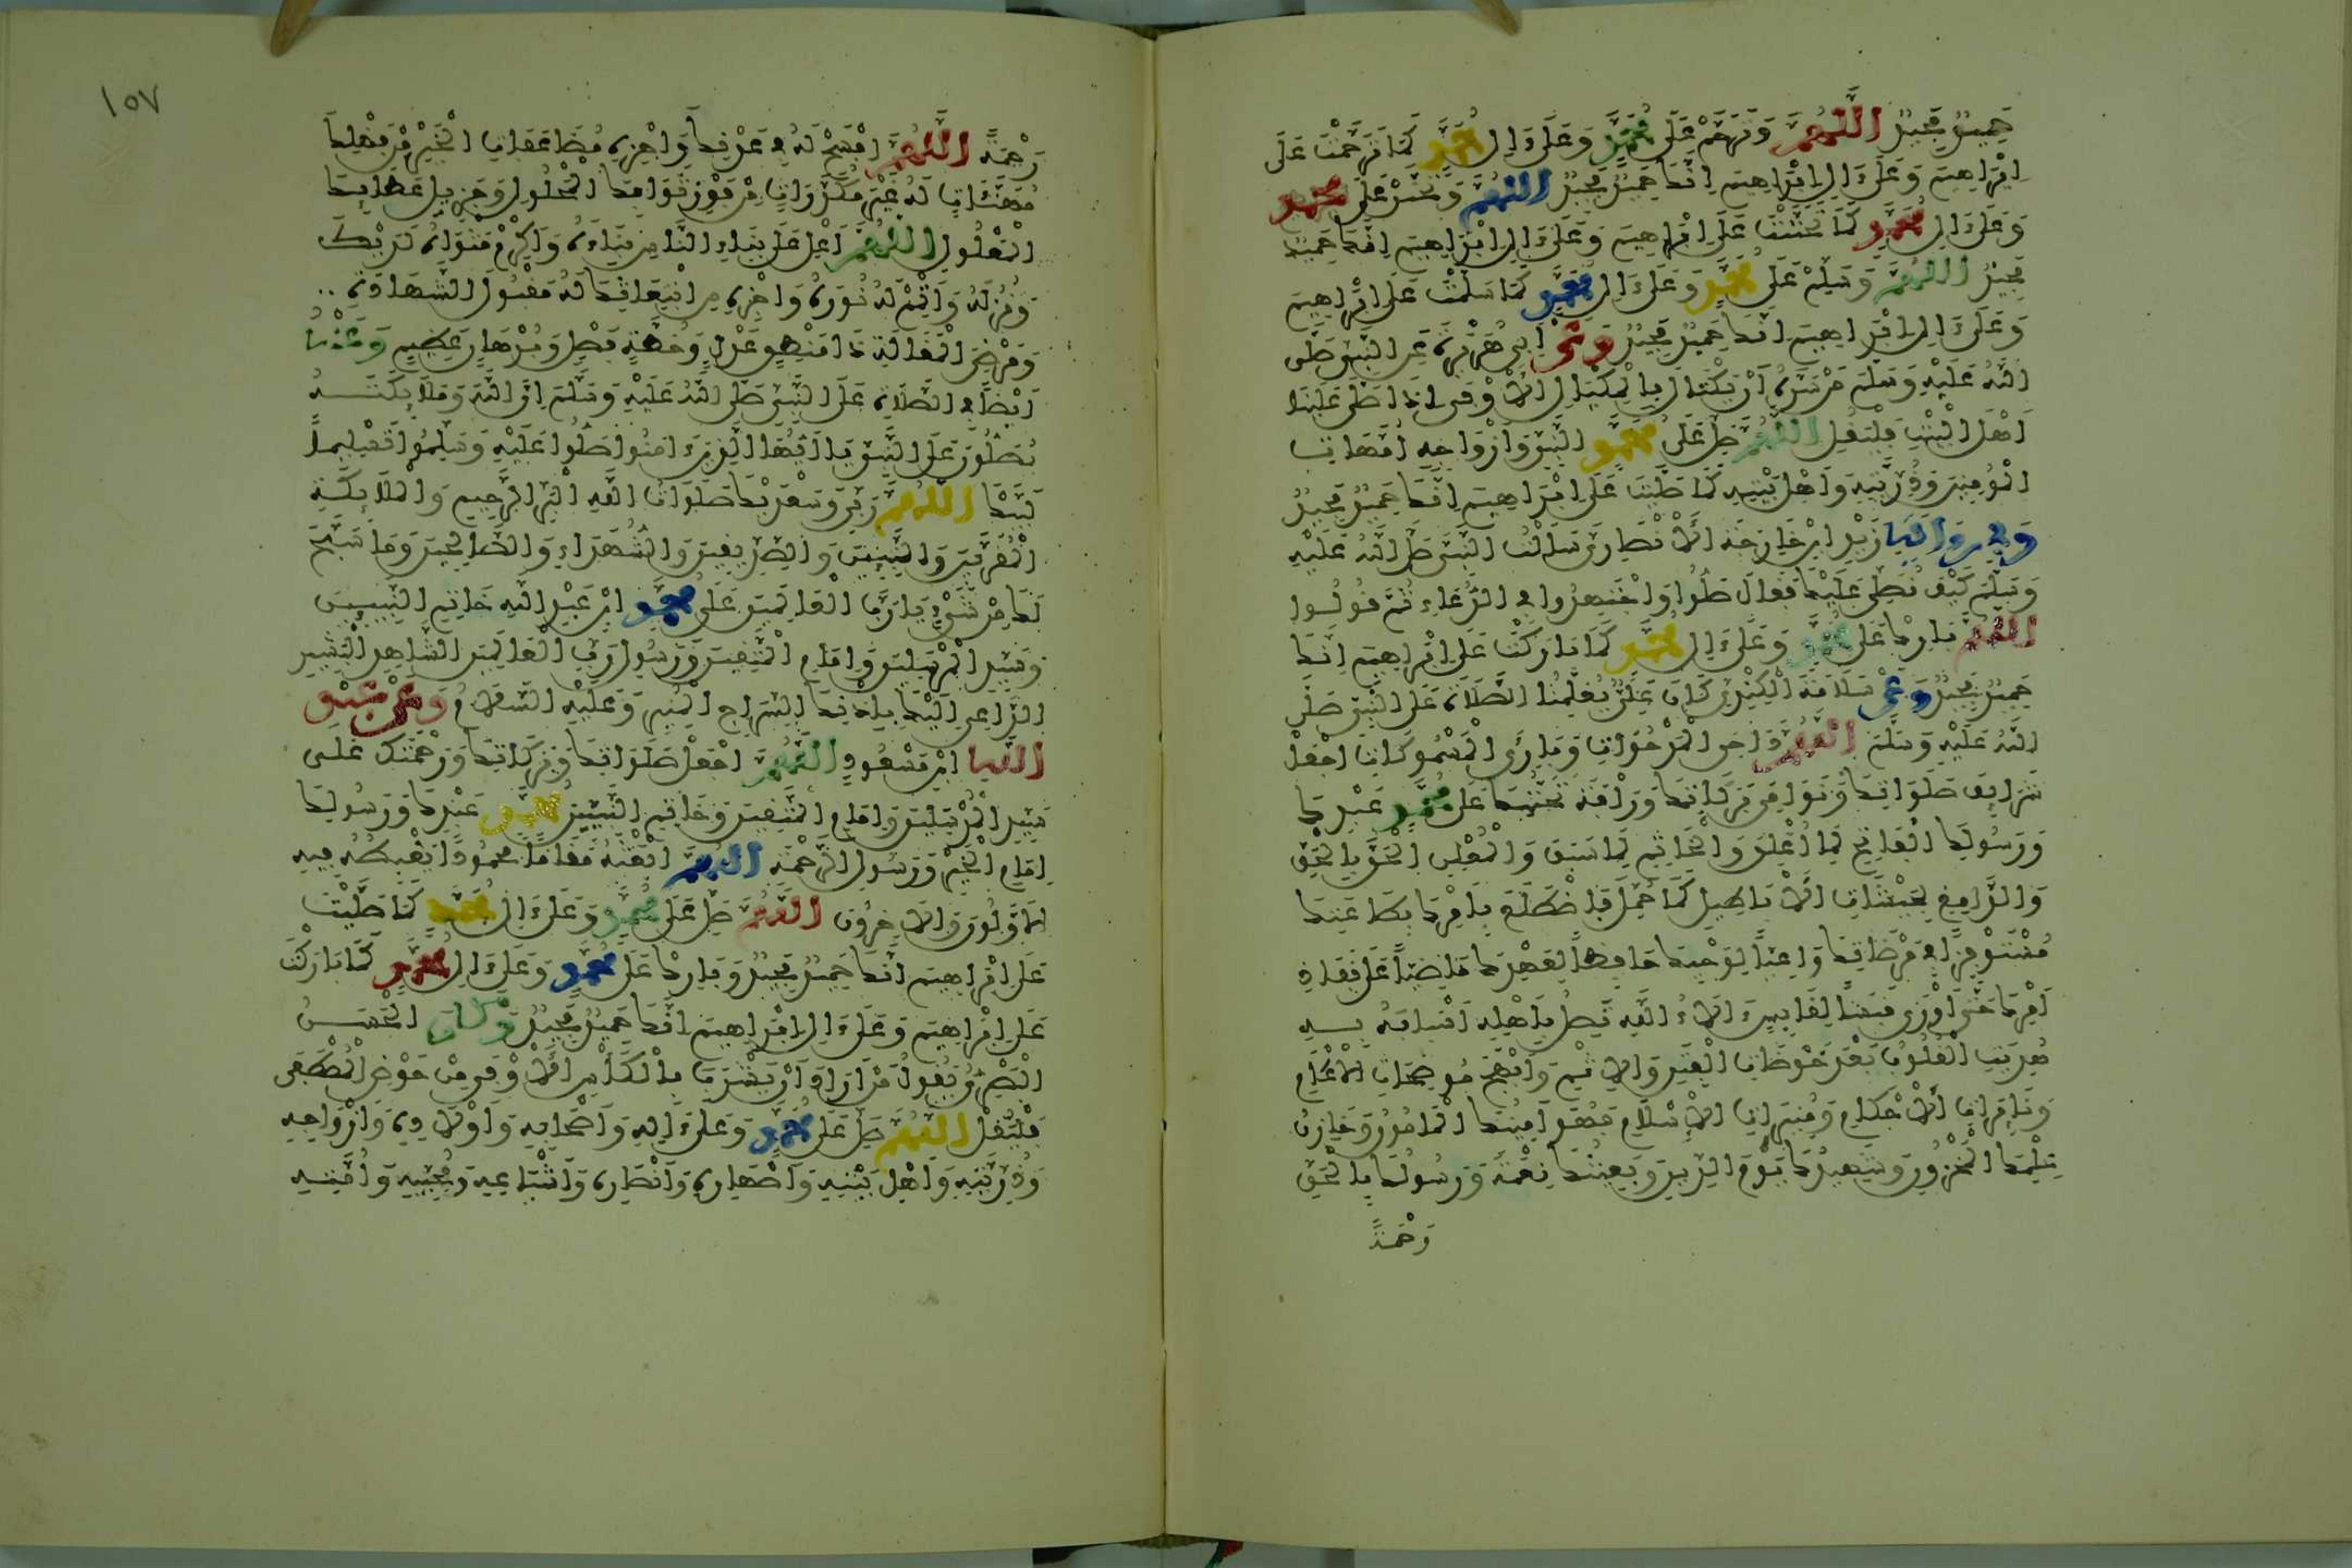 حَمِيدٌ مَجِيدٌ اللَّهُمَّ وَتَرَحَّمْ عَلَى مُحَمَّدٍ وَعَلَى ءَالِ مُحَمَّدٍ كَمَا تَرَحَّمْتَ عَلَى
إِبْرَاهِيمَ وَعَلَى ءَالِ إِبْرَاهِيمَ إِنَّكَ حَمِيدٌ مَجِيدٌ اللَّهُمَّ وَتَحَنَّنْ عَلَى مُحَمَّدٍ
وَعَلَى ءَالِ مُحَمَّدٍ كَمَا تَحَنَّنْتَ عَلَى إِبْرَاهِيمَ وَعَلَى ءَالِ إِبْرَاهِيمَ إِنَّكَ حَمِيدٌ
مَجِيدٌ اللَّهُمَّ وَسَلِّمْ عَلَى مُحَمَّدٍ وَعَلَى ءَالِ مُحَمَّدٍ كَمَا سَلَّمْتَ عَلَى إِبْرَاهِيمَ
وَعَلَى ءَالِ إِبْرَاهِيمَ إِنَّكَ حَمِيدٌ مَجِيدٌ وَعَنْ أَبِي هُرَيْرَةَ عَنِ النَّبِيِّ صَلَّى
اللَّهُ عَلَيْهِ وَسَلَّمَ مَنْ سَرَّهُ أَنْ يَكْتَالَ بِالْمِكْيَالِ الْأَوْفَى إِذَا صَلَّى عَلَيْنَا
أَهْلَ الْبَيْتِ فَلْيَقُلِ اللَّهُمَّ صَلِّ عَلَى مُحَمَّدٍ النَّبِيِّ وَأَزْوَاجِهِ أُمَّهَاتِ
الْمُؤْمِنِينَ وَذُرِّيَّتِهِ وَأَهْلِ بَيْتِهِ كَمَا صَلَّيْتَ عَلَى إِبْرَاهِيمَ إِنَّكَ حَمِيدٌ مَجِيدٌ
وَفِي رِوَايَةِ زَيْدِ ابْنِ خَارِجَةَ الْأَنْصَارِيِّ سَأَلْتُ النَّبِيَّ صَلَّى اللَّهُ عَلَيْهِ
وَسَلَّمَ كَيْفَ نُصَلِّي عَلَيْكَ فَقَالَ صَلُّوا وَاجْتَهِدُوا فِي الدُّعَاءِ ثُمَّ قُولُوا
اللَّهُمَّ بَارِكْ عَلَى مُحَمَّدٍ وَعَلَى ءَالِ مُحَمَّدٍ كَمَا بَارَكْتَ عَلَى إِبْرَاهِيمَ إِنَّكَ
حَمِيدٌ مَجِيدٌ وَعَنْ سَلَامَةَ الْكِنْدِيِّ كَانَ عَلِيٌّ يُعَلِّمُنَا الصَّلَاةَ عَلَى النَّبِيِّ صَلَّى
اللَّهُ عَلَيْهِ وَسَلَّمَ اللَّهُمَّ دَاحِيَ الْمَدْحُوَّاتِ وَبَارِئَ الْمَسْمُوكَاتِ اجْعَلْ
شَرَائِفَ صَلَوَاتِكَ وَنَوَامِيَ بَرَكَاتِكَ وَرَأْفَةَ تَحَنُّنِكَ عَلَى مُحَمَّدٍ عَبْدِكَ
وَرَسُولِكَ الْفَاتِحِ لِمَا أُغْلِقَ وَالْخَاتِمِ لِمَا سَبَقَ وَالْمُعْلِنِ الْحَقَّ بِالْحَقِّ
وَالدَّامِغِ لِجَيْشَاتِ الْأَبَاطِيلِ كَمَا حُمِّلَ فَاضْطَلَعَ بِأَمْرِكَ بِطَاعَتِكَ
مُسْتَوْفِزًا فِي مَرْضَاتِكَ وَاعِيًا لِوَحْيِكَ حَافِظًا لِعَهْدِكَ مَاضِيًا عَلَى نَفَاذِ
أَمْرِكَ حَتَّى أَوْرَى قَبَسًا لِقَابِسٍ ءَالَاءُ اللَّهِ تَصِلُ بِأَهْلِهِ أَسْبَابَهُ بِهِ
هُدِيَتِ الْقُلُوبُ بَعْدَ خَوْضَاتِ الْفِتَنِ وَالْإِثْمِ وَأَبْهَجَ مُوضِحَاتِ الْأَعْلَامِ
وَنَائِرَاتِ الْأَحْكَامِ وَمُنِيرَاتِ الْإِسْلَامِ فَهُوَ أَمِينُكَ الْمَأْمُونُ وَخَازِنُ
عِلْمِكَ الْمَخْزُونِ وَشَهِيدُكَ يَوْمَ الدِّينِ وَبَعِيثُكَ نِعْمَةً وَرَسُولُكَ بِالْحَقِّ
رَحْمَةً
١٥٧
رَحْمَةً اللَّهُمَّ افْسَحْ لَهُ فِي عَدْنِكَ وَاجْزِهِ مُضَاعَفَاتِ الْخَيْرِ مِنْ فَضْلِكَ
مُهَنَّئَاتٍ لَهُ غَيْرَ مُكَدَّرَاتٍ مِنْ فَوْزِ ثَوَابِكَ الْمَحْلُولِ وَجَزِيلِ عَطَائِكَ
الْمَعْلُولِ اللَّهُمَّ أَعْلِ عَلَى بِنَاءِ النَّاسِ بِنَاءَهُ وَأَكْرِمْ مَثْوَاهُ لَدَيْكَ
وَنُزُلَهُ وَأَتْمِمْ لَهُ نُورَهُ وَاجْزِهِ مِنِ ابْتِعَاثِكَ لَهُ مَقْبُولَ الشَّهَادَةِ
وَمَرْضِيَّ الْمَقَالَةِ ذَا مَنْطِقٍ عَدْلٍ وَخُطَّةٍ فَصْلٍ وَبُرْهَانٍ عَظِيمٍ وَعَنْهُ
أَيْضًا فِي الصَّلَاةِ عَلَى النَّبِيِّ صَلَّى اللَّهُ عَلَيْهِ وَسَلَّمَ إِنَّ اللَّهَ وَمَلَائِكَتَهُ
يُصَلُّونَ عَلَى النَّبِيِّ يَا أَيُّهَا الَّذِينَ ءَامَنُوا صَلُّوا عَلَيْهِ وَسَلِّمُوا تَسْلِيمًا
لَبَّيْكَ اللَّهُمَّ رَبِّي وَسَعْدَيْكَ صَلَوَاتُ اللَّهِ الْبَرِّ الرَّحِيمِ وَالْمَلَائِكَةِ
الْمُقَرَّبِينَ وَالنَّبِيِّينَ وَالصِّدِّيقِينَ وَالشُّهَدَاءِ وَالصَّالِحِينَ وَمَا سَبَّحَ
لَكَ مِنْ شَيْءٍ يَا رَبَّ الْعَالَمِينَ عَلَى مُحَمَّدٍ ابْنِ عَبْدِ اللَّهِ خَاتِمِ النَّبِيِّينَ
وَسَيِّدِ الْمُرْسَلِينَ وَإِمَامِ الْمُتَّقِينَ وَرَسُولِ رَبِّ الْعَالَمِينَ الشَّاهِدِ الْبَشِيرِ
الدَّاعِي إِلَيْكَ بِإِذْنِكَ السِّرَاجِ الْمُنِيرِ وَعَلَيْهِ السَّلَامُ وَعَنْ عَبْدِ
اللَّهِ ابْنِ مَسْعُودٍ اللَّهُمَّ اجْعَلْ صَلَوَاتِكَ وَبَرَكَاتِكَ وَرَحْمَتَكَ عَلَى
سَيِّدِ الْمُرْسَلِينَ وَإِمَامِ الْمُتَّقِينَ وَخَاتِمِ النَّبِيِّينَ مُحَمَّدٍ عَبْدِكَ وَرَسُولِكَ
إِمَامِ الْخَيْرِ وَرَسُولِ الرَّحْمَةِ اللَّهُمَّ ابْعَثْهُ مَقَامًا مَحْمُودًا يَغْبِطُهُ فِيهِ
الْأَوَّلُونَ وَالْآخِرُونَ اللَّهُمَّ صَلِّ عَلَى مُحَمَّدٍ وَعَلَى ءَالِ مُحَمَّدٍ كَمَا صَلَّيْتَ
عَلَى إِبْرَاهِيمَ إِنَّكَ حَمِيدٌ مَجِيدٌ وَبَارِكْ عَلَى مُحَمَّدٍ وَعَلَى ءَالِ مُحَمَّدٍ كَمَا بَارَكْتَ
عَلَى إِبْرَاهِيمَ وَعَلَى ءَالِ إِبْرَاهِيمَ إِنَّكَ حَمِيدٌ مَجِيدٌ وَكَانَ الْحَسَنُ
الْبَصْرِيُّ يَقُولُ مَنْ أَرَادَ أَنْ يَشْرَبَ بِالْكَأْسِ الْأَوْفَى مِنْ حَوْضِ الْمُصْطَفَى
فَلْيَقُلْ اللَّهُمَّ صَلِّ عَلَى مُحَمَّدٍ وَعَلَى ءَالِهِ وَأَصْحَابِهِ وَأَوْلَادِهِ وَأَزْوَاجِهِ
وَذُرِّيَّتِهِ وَأَهْلِ بَيْتِهِ وَأَصْهَارِهِ وَأَنْصَارِهِ وَأَشْيَاعِهِ وَمُحِبِّيهِ وَأُمَّتِهِ